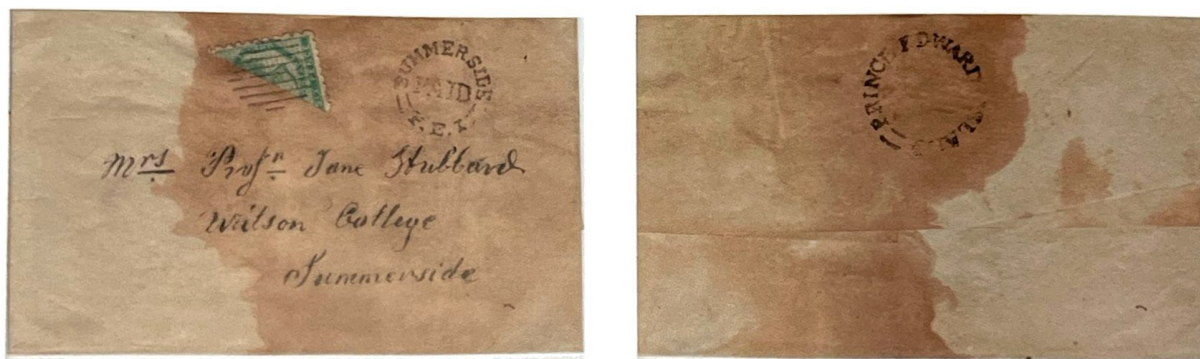 SUMMERSIDE
P. E. I.
Mrs Profr Jane Hubbard
Wilson College
Summerside
PRINCE EDWARD ISLA